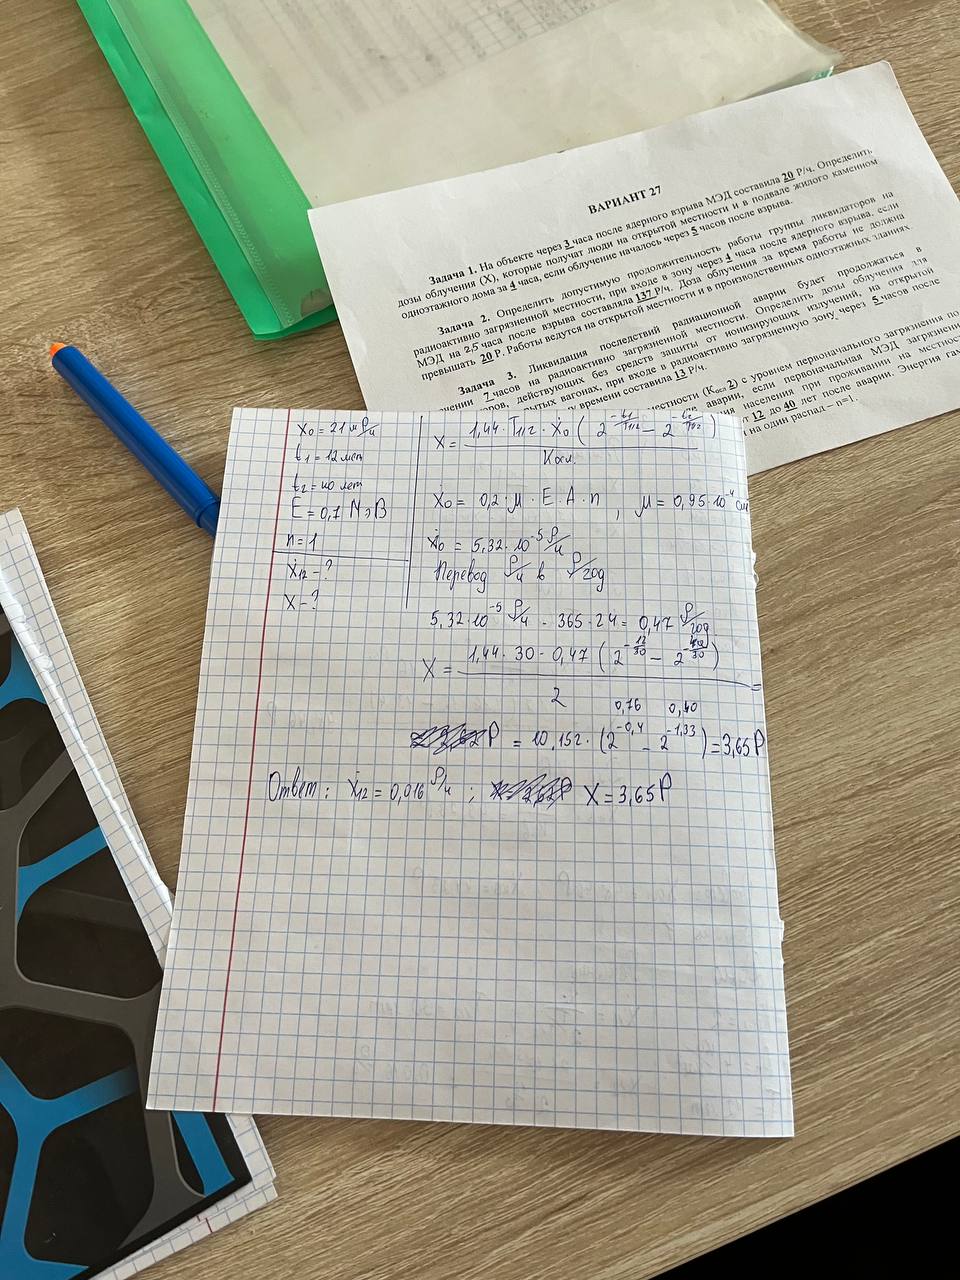 ВАРИАНТ 27
Задача 1. На объекте через 3 часа после ядерного взрыва МЭД составила 20 Р/ч. Определить
дозы облучения (Х), которые получат люди на открытой местности и в подвале жилого каменном
одноэтажного дома за 4 часа, если облучение началось через 5 часов после взрыва.
Задача 2. Определить допустимую продолжительность работы группы ликвидаторов на
радиоактивно загрязненной местности, при входе в зону через 4 часа после ядерного взрыва, если
МЭД на 2,5 часа после взрыва составляла 137 Р/ч. Доза облучения за время работы не должна
превышать 20 Р. Работы ведутся на открытой местности и в производственных одноэтажных зданиях
Задача 3. Ликвидация последствий радиационной аварии будет продолжаться в
чении 7 часов на радиоактивно загрязненной местности. Определить дозы облучения для
ров, действующих без средств защиты от ионизирующих излучений, на открытой
тых вагонах, при входе в радиоактивно загрязненную зону через 5 часов после
времени составила 13 Р/ч.
местности (Косл 2) с уровнем первоначального загрязнения по
аварии, если первоначальная МЭД загрязнения
населения при проживании на местнос
ут 12 до 40 лет после аварии. Энергия гам
на один распад – n=1.
X₀ = 21 м Р/ч
t₁ = 12 лет
t₂ = 40 лет
E = 0,7 МэВ
n = 1
Ẋ₁₂ - ?
X - ?
X = 1,44 · T₁/₂ · Ẋ₀ (2^(-t₁/T₁/₂) - 2^(-t₂/T₁/₂)) / Kосл.
Ẋ₀ = 0,2 · μ · E · A · n , μ = 0,95 · 10⁻⁴ см
Ẋ₀ = 5,32 · 10⁻⁵ Р/ч
Перевод Р/ч в Р/год
5,32 · 10⁻⁵ Р/ч · 365 · 24 = 0,47 Р/год
X = 1,44 · 30 · 0,47 (2^(-12/30) - 2^(-40/30)) / 2 =
0,76 0,40
Р = 10,152 · (2^(-0,4) - 2^(-1,33)) = 3,65 Р
Ответ: Ẋ₁₂ = 0,016 Р/ч ; X = 3,65 Р